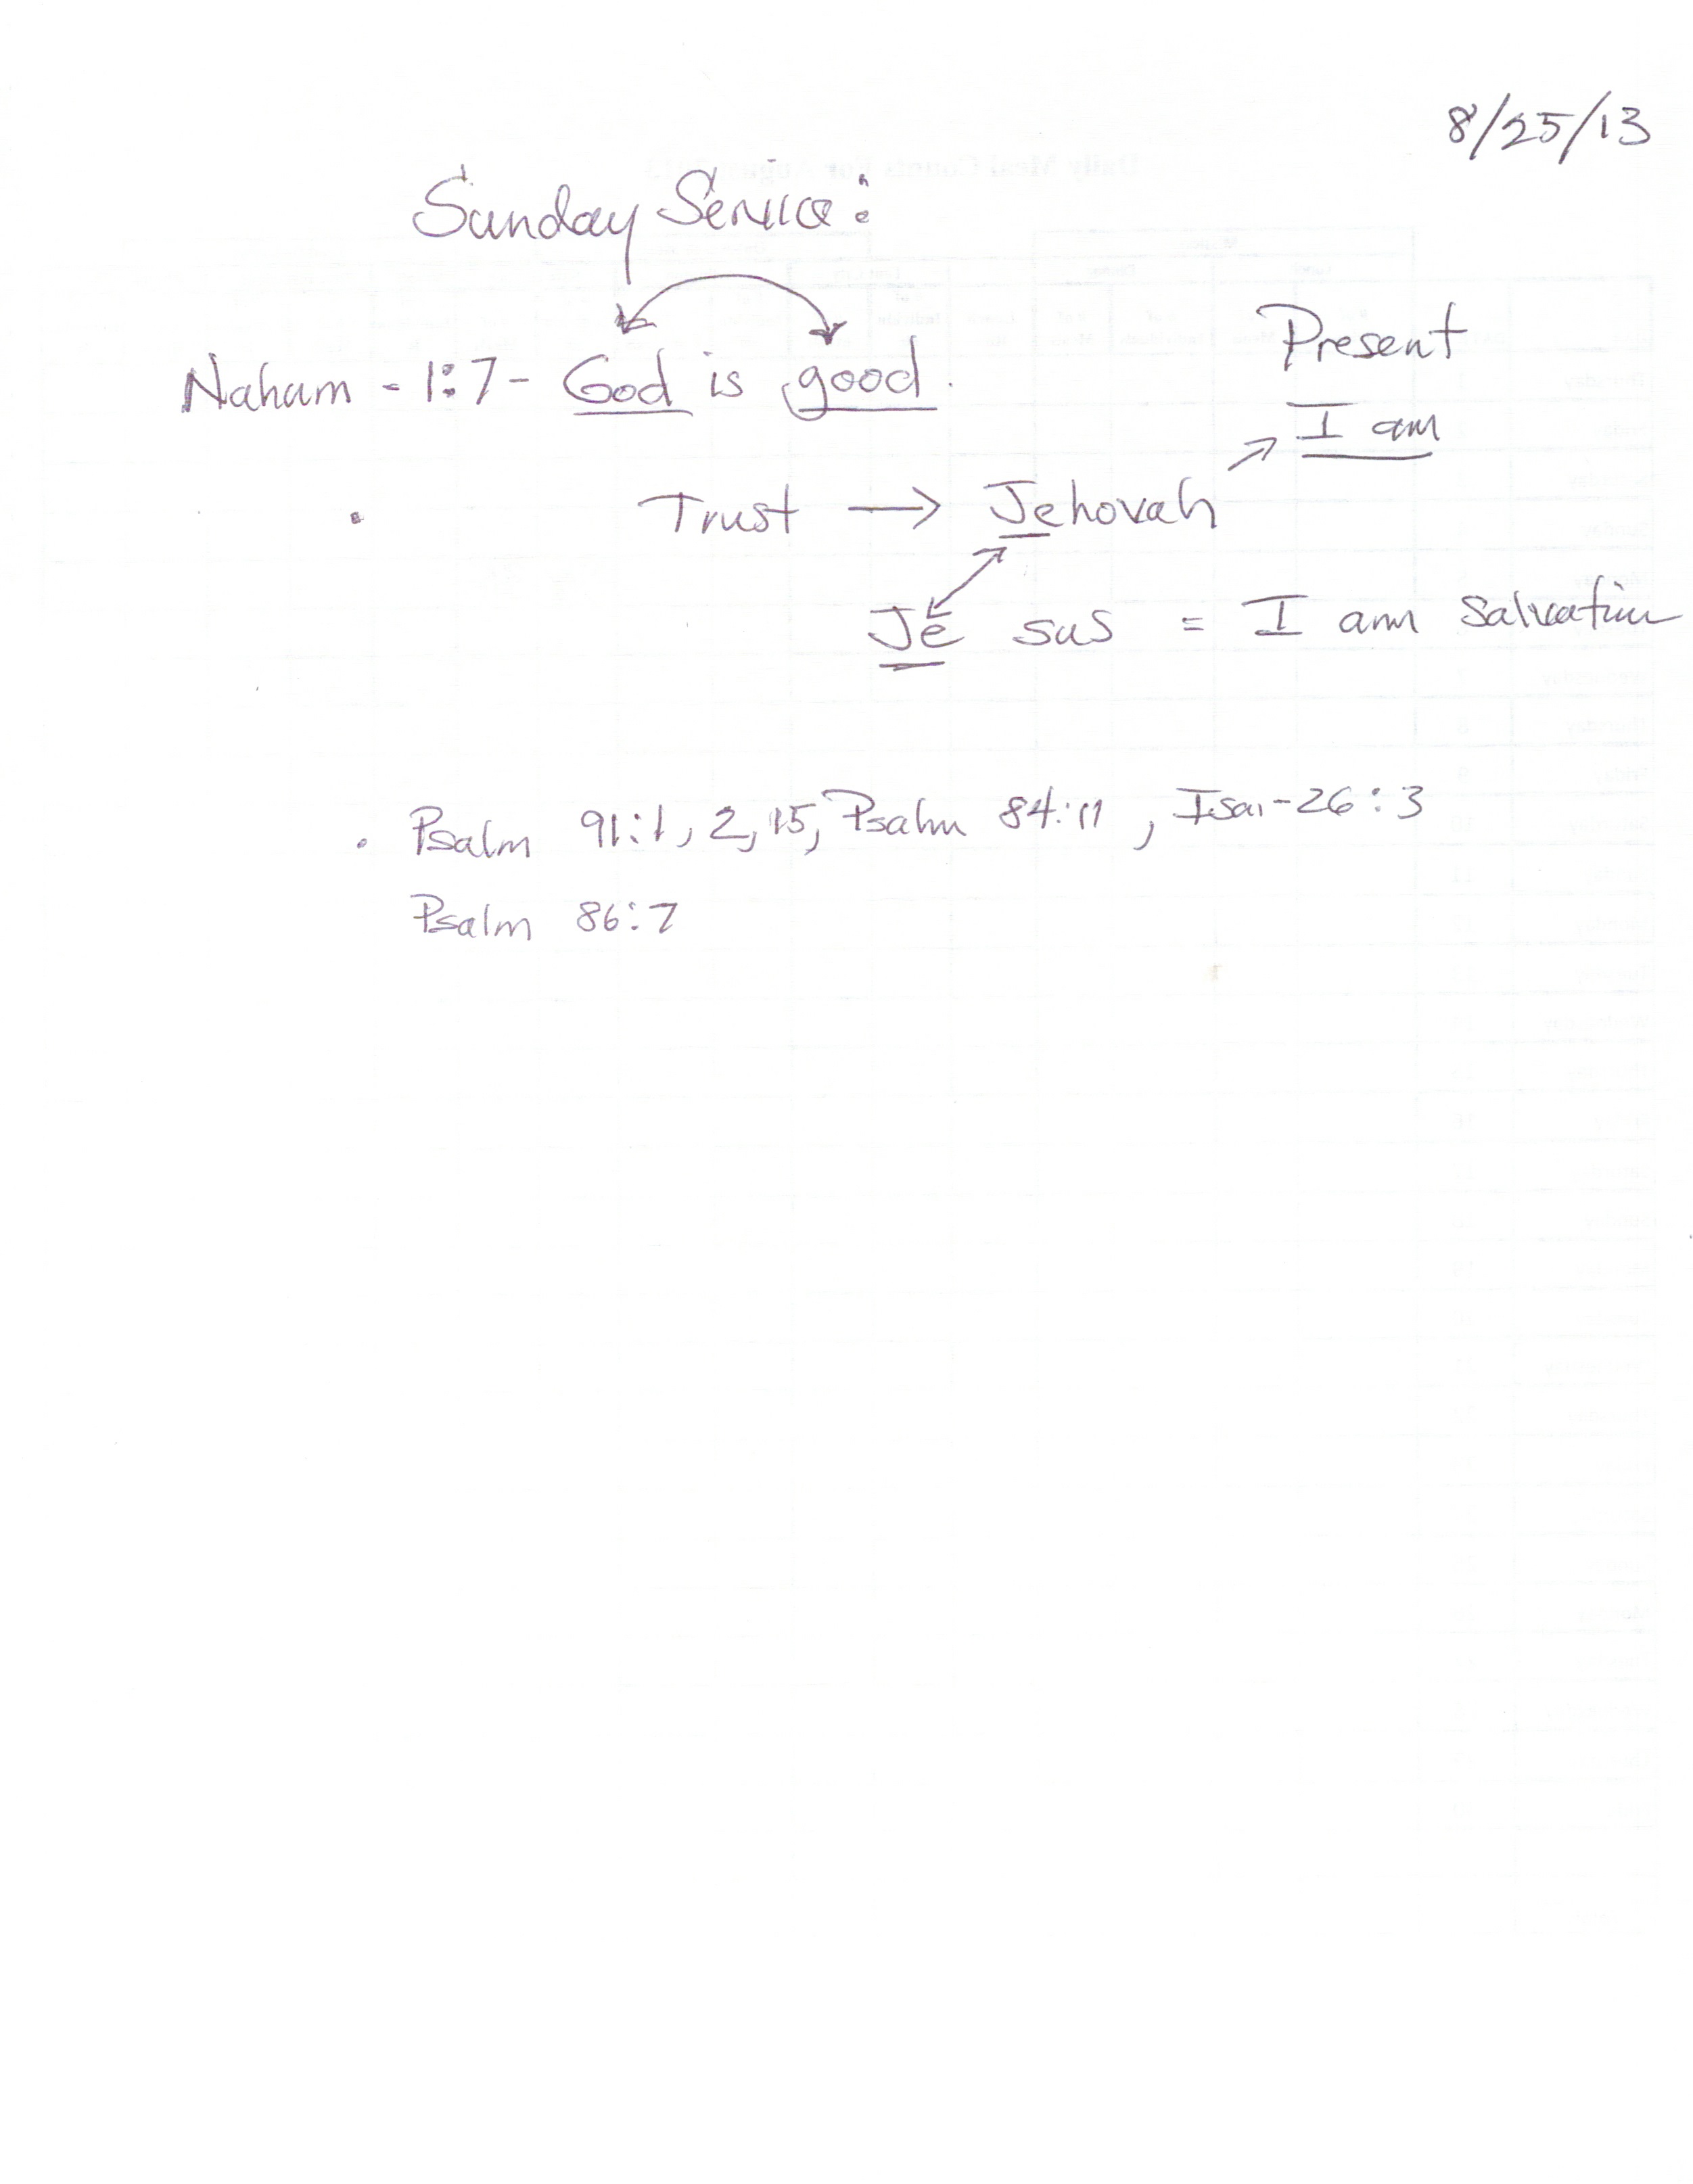 8/25/13
Sunday Service:
Present
Naham - 1:7 - God is good.
I am
Trust → Jehovah
Je sus = I am salvation
. Psalm 91:1, 2, 15, Psalm 84:11, Isai-26:3
Psalm 86:7